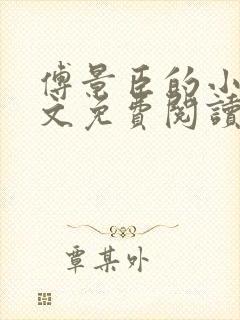 傅景臣的小
文免費閱讀
覃某外